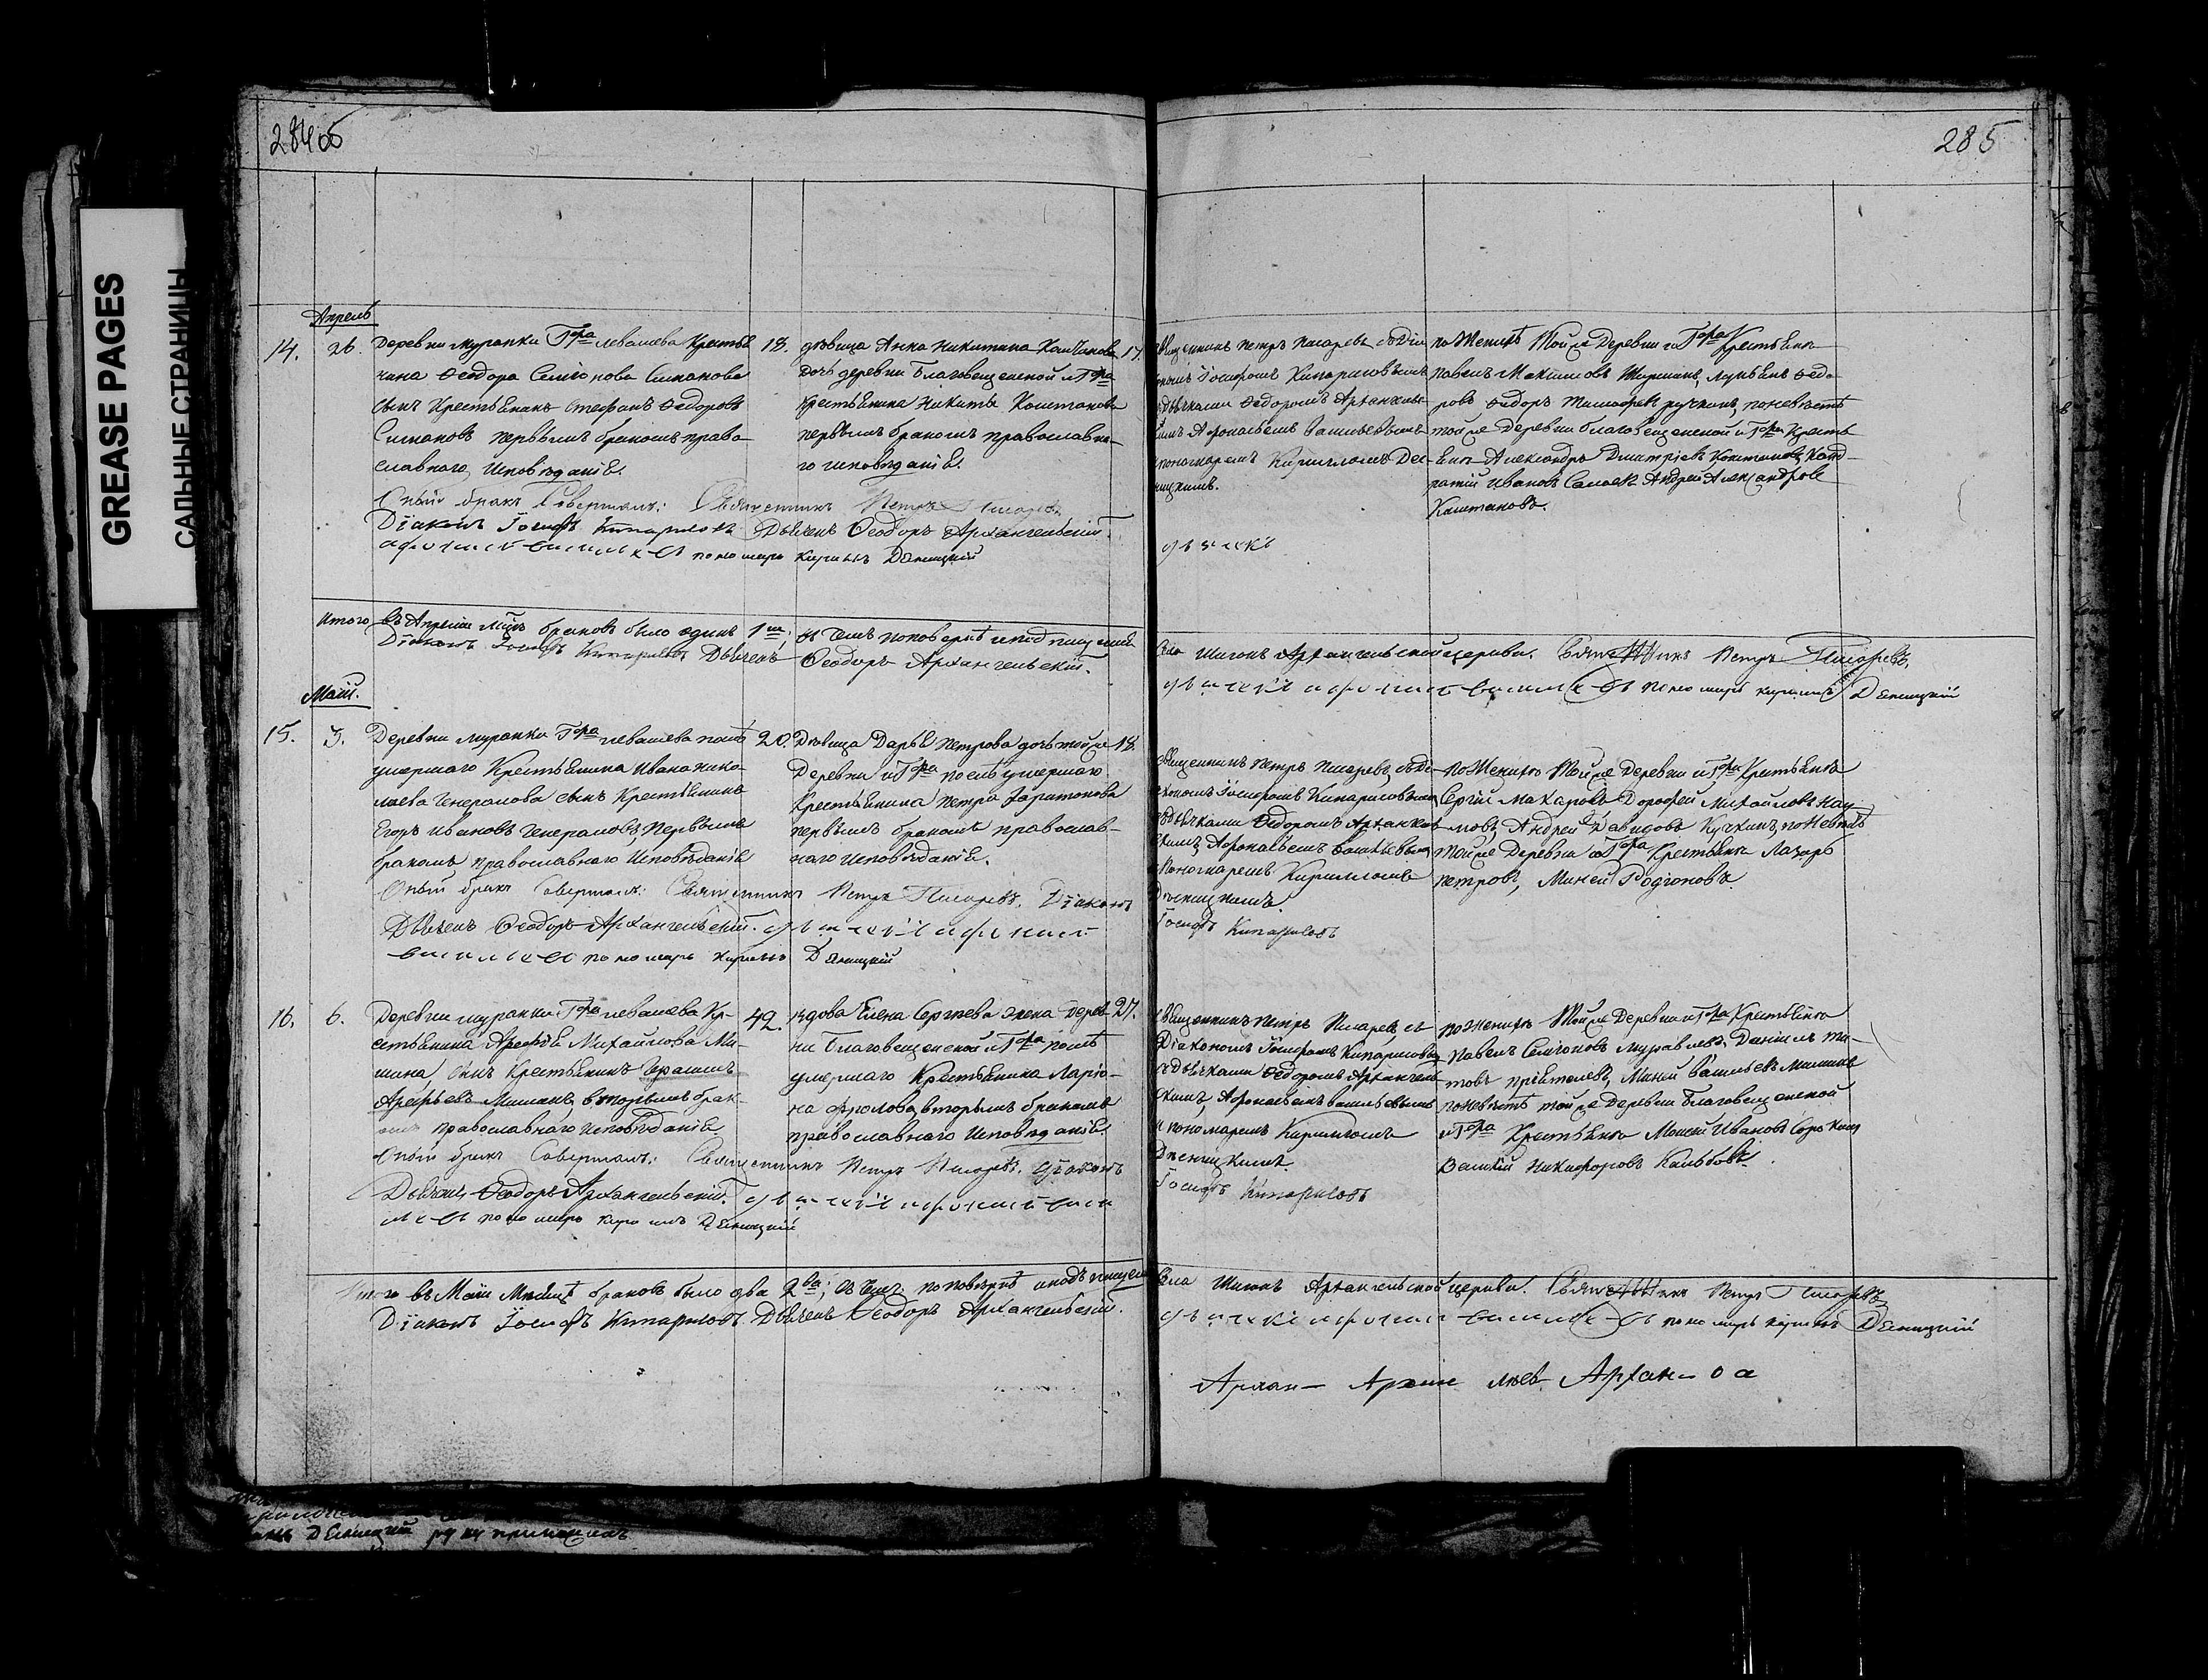 GREASE PAGES
САЛЬНЫЕ СТРАНИЦЫ
284 об
285
Апрель
14. 26. Деревни Муранки Г-ра Левашева Крестья
нина Феодора Семионова Симанова
сынъ Крестьянинъ Стефанъ Федоровъ
Симановъ первымъ бракомъ право-
славнаго Исповѣданія.
18.
дѣвица Анна Никитина Каштанова
дочь деревни Благовещенской и Г-ра
крестьянина Никиты Каштанова
первымъ бракомъ православна-
го исповѣданія.
17
священникъ Петръ Писаревъ съ Діа
кономъ Іосифомъ Кипарисовымъ
дьячками Федоромъ Архангель
скимъ Афонасьемъ Васильевымъ
пономаремъ Кириломъ Дее
ницкимъ.
по Женихѣ Той же Деревни и Г-ра Крестьяне
Павелъ Максимовъ Федо-
ровъ Федоръ Тимофеевъ по невѣстѣ
той же Деревни Благовещенской и Г-ра Кресть
яне Александръ Дмитріевъ Каштановъ Конд-
ратій Ивановъ Андрей Александровъ
Каштановъ.
Оный бракъ Совершали: Священникъ Петръ Писаревъ
Діаконъ Іосифъ Кипарисовъ Дьячекъ Феодоръ Архангельский.
афонасей васильевъ пономарь Кирилъ Деницкій
дьячекъ
Итого въ Апреле мѣсяцѣ браковъ было одинъ 1-нъ; въ чемъ по повѣркѣ и подписуемся
села Шигонъ Архангельской церкви. Священникъ Петръ Писаревъ.
Діаконъ Іосифъ Кипарисовъ Дьячекъ Феодоръ Архангельскій.
дьячекъ афонасей васильевъ пономарь кирилъ Деницкій
Маій.
15. 3. Деревни Муранки Г-ра Левашева послѣ
умершаго Крестьянина Ивана Нико-
лаева Генералова сынъ Крестьянинъ
Егоръ Ивановъ Генераловъ, первымъ
бракомъ православнаго Исповѣданія
20.
Дѣвица Дарья Петрова дочь той же
Деревни и Г-ра послѣ умершаго
Крестьянина Петра Харитонова
первымъ бракомъ православ-
наго исповѣданія.
18.
священникъ Петръ Писаревъ, съ Ді-
акономъ Іосифомъ Кипарисовымъ
дьячками Федоромъ Архангель
скимъ, Афонасьемъ Васильевымъ
Пономаремъ Кириломъ
Деницкимъ.
по Женихѣ Той же Деревни и Г-ра Крестьяне
Сергій Макаровъ Дорофей Михайловъ Нау-
мовъ, Андрей Давидовъ Кучкинъ, по Невѣстѣ
Той же Деревни и Г-ра Крестьяне Лазарь
Петровъ, Миней Родіоновъ.
Оный бракъ Совершали: Священникъ Петръ Писаревъ. Діаконъ
Іосифъ Кипарисовъ
Дьячекъ Феодоръ Архангельскій. дьячекъ афонасей
васильевъ пономарь Кирилъ Деницкій
16. 6. Деревни Муранки Г-ра Левашева Кре-
стьянина Арефія Михайлова Ми-
шана, сынъ Крестьянинъ Герасимъ
Арефьевъ Мишанъ, вторымъ брак-
омъ православнаго исповѣданія
42.
вдова Елена Сергеева жена дерев
ни Благовещенской и Г-ра послѣ
умершаго Крестьянина Ларіо-
на Фролова, вторымъ бракомъ
православнаго Исповѣданія.
27.
священникъ Петръ Писаревъ, съ
Діакономъ Іосифомъ Кипарисовымъ
дьячками Федоромъ Архангель
скимъ, Афонасьемъ Васильевымъ
и пономаремъ Кириломъ
Деницкимъ.
по Женихѣ Той же Деревни и Г-ра Крестьяне
Павелъ Семіоновъ Муравлевъ, Даніилъ Ти-
товъ Пріятелевъ, Миней Васильевъ Мишинъ
по невѣстѣ той же Деревни Благовещенской
и Г-ра Крестьяне Моисей Ивановъ Сорокинъ
Василій Никифоровъ
Оный бракъ Совершали: Священникъ Петръ Писаревъ. Діаконъ
Іосифъ Кипарисовъ
Дьячекъ Феодоръ Архангельскій. дьячекъ афонасей васи
льевъ пономарь кирилъ Деницкій
Итого въ Маіи Мѣсяцѣ браковъ было два 2-ва; въ чемъ по повѣркѣ и подписуемся
села Шигонъ Архангельской церкви. Священникъ Петръ Писаревъ
Діаконъ Іосифъ Кипарисовъ. Дьячекъ Феодоръ Архангельскій.
дьячекъ афонасей васильевъ пономарь кирилъ Деницкій
Деницкій руку приложилъ